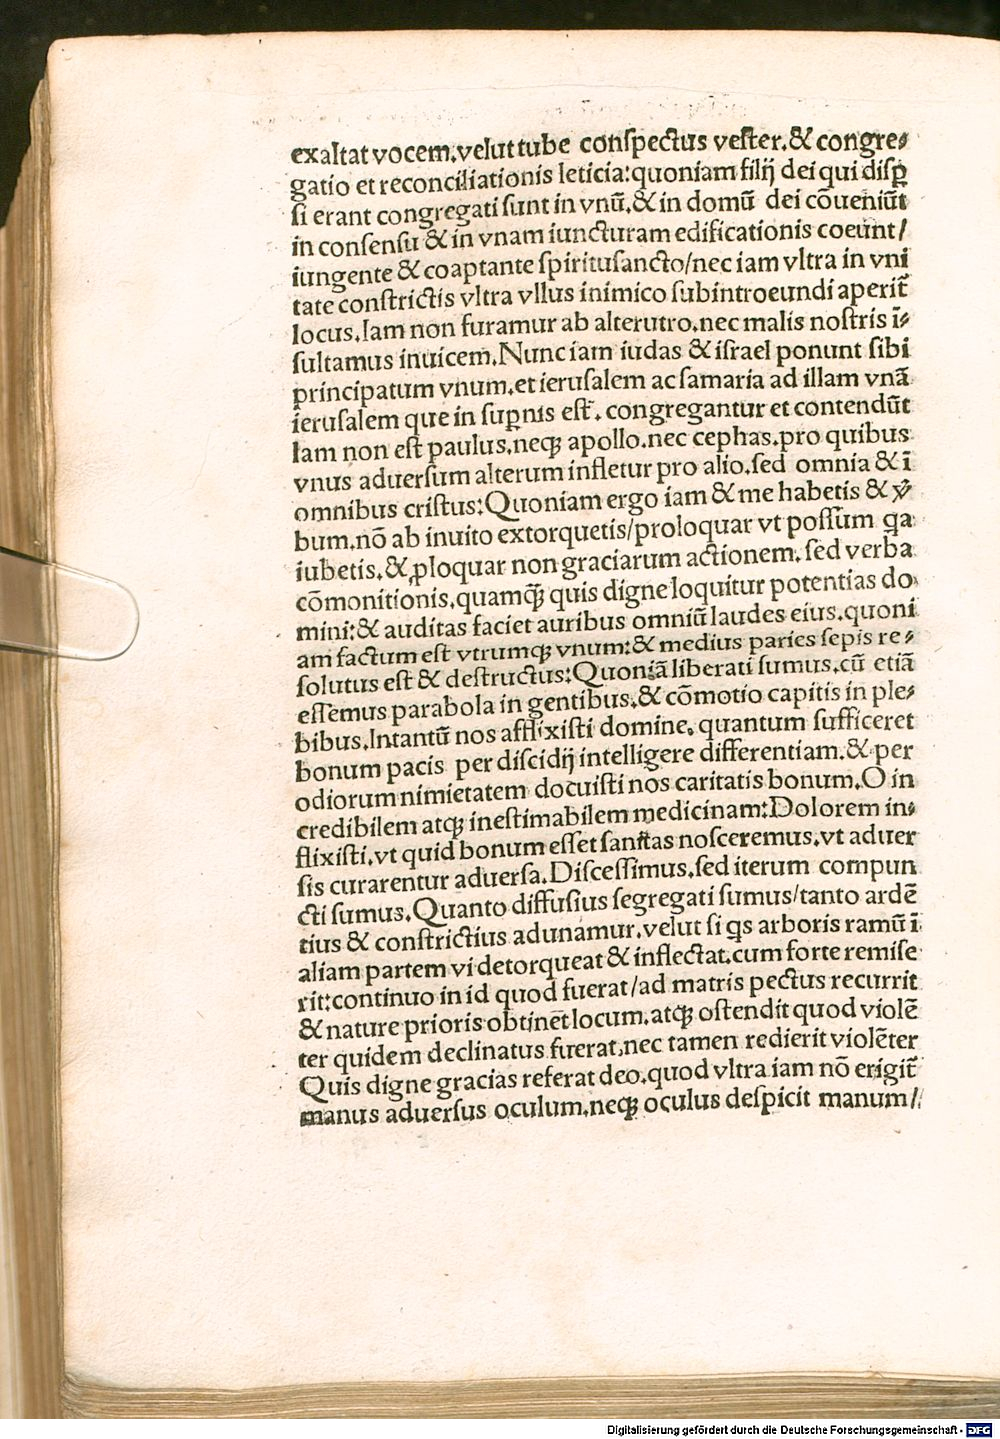 exaltat vocem.velut tube conſpectus veſter.& congre⸗
gatio et reconciliationis leticia:quoniam filij dei qui diſꝑ
ſi erant congregati ſunt in vnū.& in domū dei cōueniūt
in conſenſu & in vnam iuncturam edificationis coeunt/
iungente & coaptante ſpirituſancto/nec iam vltra in vni
tate conſtrictis vltra vllus inimico ſubintroeundi aperit̃
locus.Iam non furamur ab alterutro.nec malis noſtris ī⸗
ſultamus inuicem.Nunc iam iudas & iſrael ponunt ſibi
principatum vnum.et ieruſalem ac ſamaria ad illam vnā
ieruſalem que in ſuꝑnis eſt. congregantur et contendūt
Iam non eſt paulus.neqꝫ apollo.nec cephas.pro quibus
vnus aduerſum alterum infletur pro alio.ſed omnia & ī
omnibus criſtus:Quoniam ergo iam & me habetis & v̉
bum.nō ab inuito extorquetis/proloquar vt poſſum qa
iubetis.& ꝓloquar non graciarum actionem. ſed verba
cōmonitionis.quamqꝫ quis digne loquitur potentias do
mini:& auditas faciet auribus omniū laudes eius.quoni
am factum eſt vtrumqꝫ vnum:& medius paries ſepis re⸗
ſolutus eſt & deſtructus:Quoniā liberati ſumus.cū etiā
eſſemus parabola in gentibus.& cōmotio capitis in ple⸗
bibus.Intantū nos afflixiſti domine. quantum ſufficeret
bonum pacis per diſcidij intelligere differentiam.& per
odiorum nimietatem docuiſti nos caritatis bonum.O in
credibilem atqꝫ ineſtimabilem medicinam:Dolorem in⸗
flixiſti.vt quid bonum eſſet ſanitas noſceremus.vt aduer
ſis curarentur aduerſa.Diſceſſimus.ſed iterum compun
cti ſumus.Quanto diffuſius ſegregati ſumus/tanto ardē
tius & conſtrictius adunamur.velut ſi qs arboris ramū ī
aliam partem vi detorqueat & inflectat.cum forte remiſe
rit:continuo in id quod fuerat/ad matris pectus recurrit
& nature prioris obtinet locum.atqꝫ oſtendit quod violē
ter quidem declinatus fuerat.nec tamen redierit violēter
Quis digne gracias referat deo.quod vltra iam nō erigit̃
manus aduerſus oculum.neqꝫ oculus deſpicit manum/
Digitalisierung gefördert durch die Deutsche Forschungsgemeinschaft - DFG